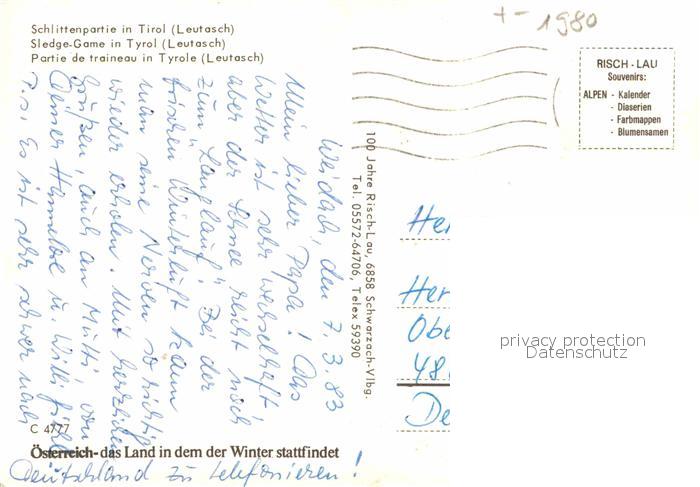 Schlittenpartie in Tirol (Leutasch)
Sledge-Game in Tyrol (Leutasch)
Partie de traineau in Tyrole (Leutasch)
+- 1980
RISCH - LAU
Souvenirs:
ALPEN - Kalender
- Diaserien
- Farbmappen
- Blumensamen
100 Jahre Risch-Lau, 6858 Schwarzach-Vlbg.
Tel. 05572-64706, Telex 59390
Weidach, den 7.3.83
Mein lieber Papa! Das
Wetter ist sehr wechselhaft,
aber der Schnee reicht noch
zum Langlauf. Bei der
frischen Winterluft kann
man seine Nerven so richtig
wieder erholen. Mit herzlichen
Grüßen, auch an Mutti von
Deiner Hannelore u. Willi
P.S. Es ist sehr schwer nach
Deutschland zu telefonieren!
C 4777
Österreich - das Land in dem der Winter stattfindet
Her
Obe
48
De
privacy protection
Datenschutz